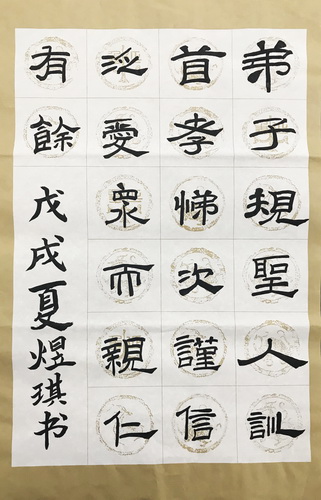 弟子規聖人訓
首孝悌次謹信
泛愛眾而親仁
有餘
戊戌夏煜琪书